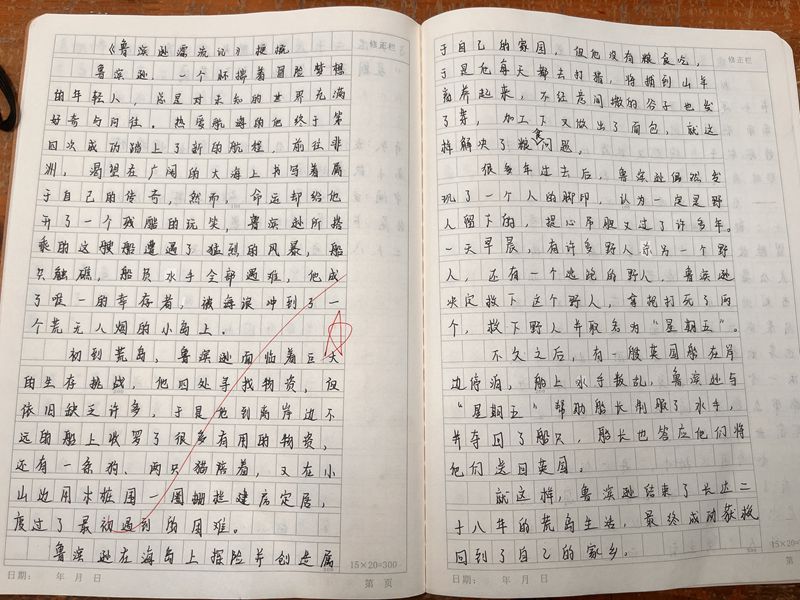 《鲁滨逊漂流记》梗概
修正栏
鲁滨逊，一个怀揣着冒险梦想
的年轻人，总是对未知的世界充满
好奇与向往。热爱航海的他终于第
四次成功踏上了新的航程，前往非
洲，渴望在广阔的大海上书写着属
于自己的传奇，然而，命运却给他
开了一个残酷的玩笑，鲁滨逊所搭
乘的这艘船遭遇了猛烈的风暴，船
只触礁，船员水手全部遇难，他成
了唯一的幸存者，被海浪冲到了一
个荒无人烟的小岛上。
初到荒岛，鲁滨逊面临着巨大
的生存挑战，他四处寻找物资，但
依旧缺乏许多，于是他到离岸边不
远的船上搜罗了很多有用的物资，
还有一条狗、两只猫陪着，又在小
山边用木桩围一圈栅栏建房定居，
度过了最初遇到的困难。
鲁滨逊在海岛上探险并创造属
15×20=300
日期： 年 月 日
第 页
于自己的家园，但他没有粮食吃，
修正栏
于是他每天都去打猎，将捕到山羊
畜养起来，不经意间撒的谷子也发
了芽，加工下又做出了面包，就这
样解决了粮食问题，
很多年过去后，鲁滨逊偶然发
现了一个人的脚印，认为一定是野
人留下的，提心吊胆又过了许多年。
一天早晨，有许多野人追另一个野
人，还有一个逃跑的野人，鲁滨逊
决定救下这个野人，拿抢打死了两
个，救下野人并取名为“星期五”。
不久之后，有一艘英国船在岸
边停泊，船上水手叛乱，鲁滨逊与
“星期五”帮助船长制服了水手，
并夺回了船只，船长也答应他们将
他们送回英国。
就这样，鲁滨逊结束了长达二
十八年的荒岛生活，最终成功获救
回到了自己的家乡。
15×20=300
日期： 年 月 日
第